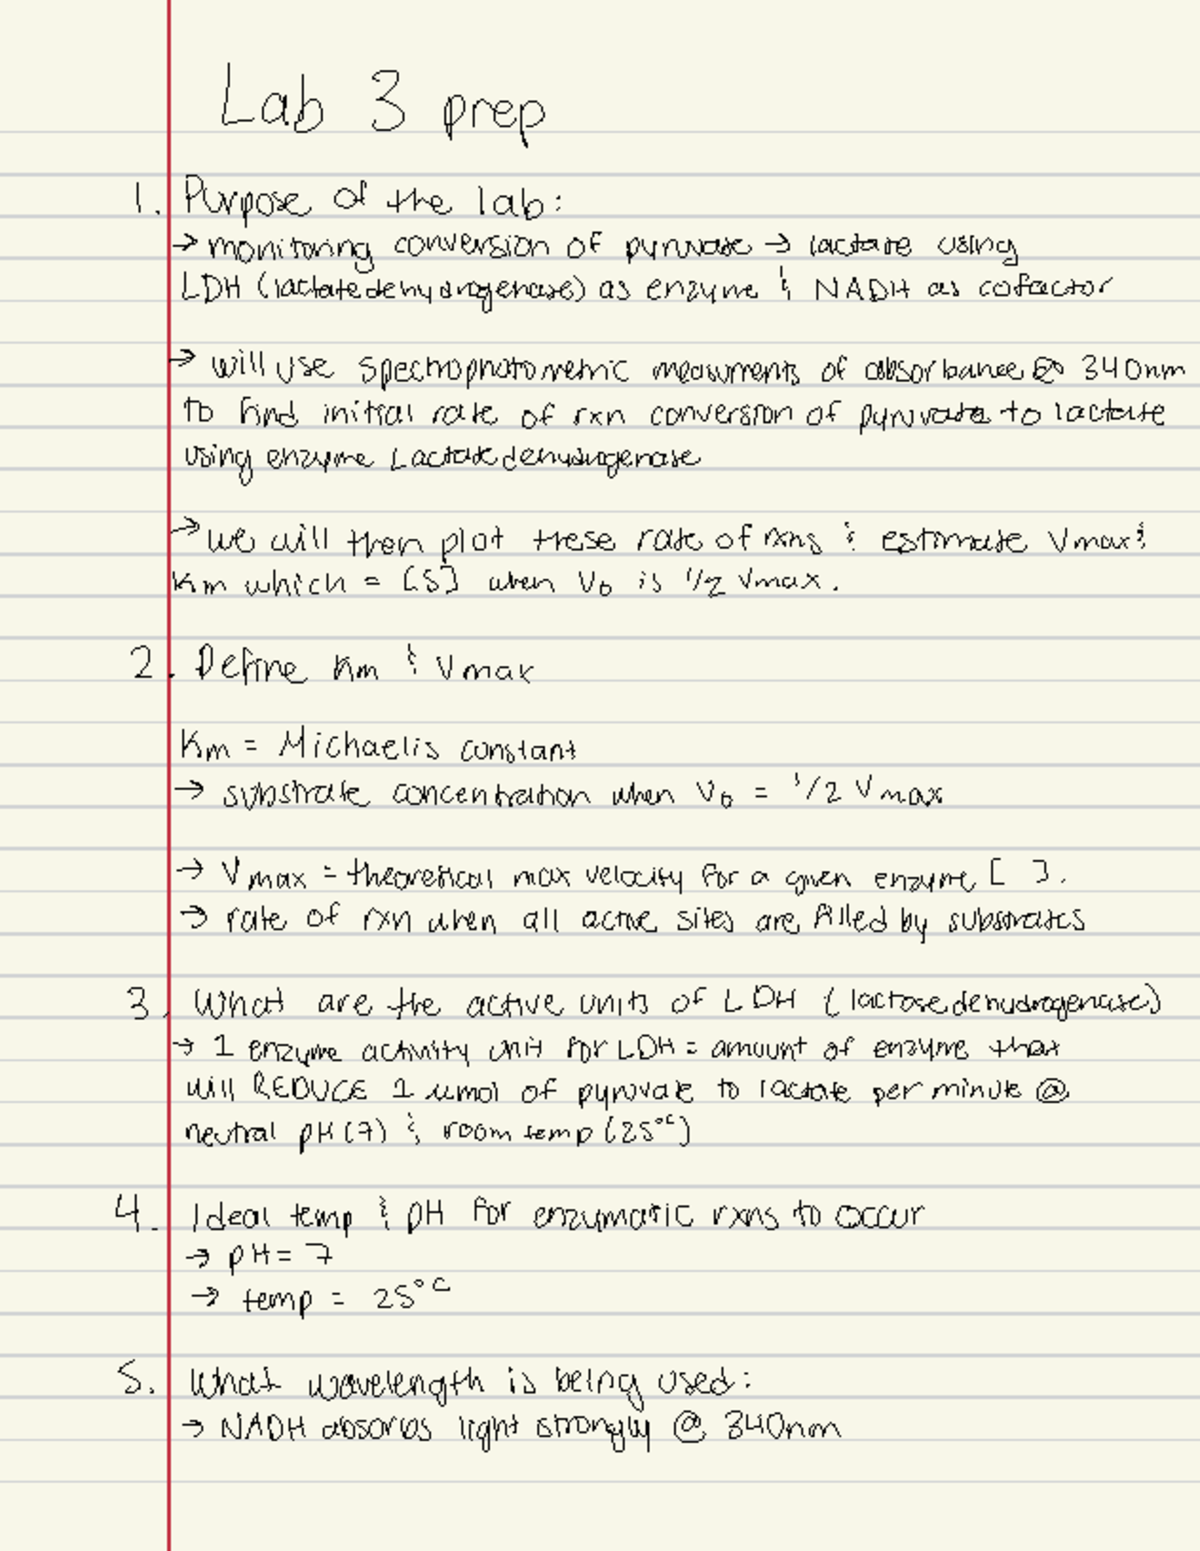 Lab 3 prep
1. Purpose of the lab:
→ monitoring conversion of pyruvate → lactate using
LDH (lactatedehydrogenase) as enzyme & NADH as cofactor
→ will use spectrophotometric measurments of absorbance @ 340nm
to find initial rate of rxn conversion of pyruvate to lactate
using enzyme Lactatedehydrogenase
→ we will then plot these rate of rxns & estimate Vmax &
Km which = [S] when V₀ is 1/2 Vmax.
2. Define Km & Vmax
Km = Michaelis constant
→ substrate concentration when V₀ = 1/2 Vmax
→ Vmax = theoretical max velocity for a given enzyme [ ].
→ rate of rxn when all active sites are filled by substrates
3. What are the active units of LDH (lactosedehydrogenase)
→ 1 enzyme activity unit for LDH = amount of enzyme that
will REDUCE 1 μmol of pyruvate to lactate per minute @
neutral pH (7) & room temp (25°C)
4. Ideal temp & pH for enzymatic rxns to occur
→ pH = 7
→ temp = 25°C
5. What wavelength is being used:
→ NADH absorbs light strongly @ 340nm